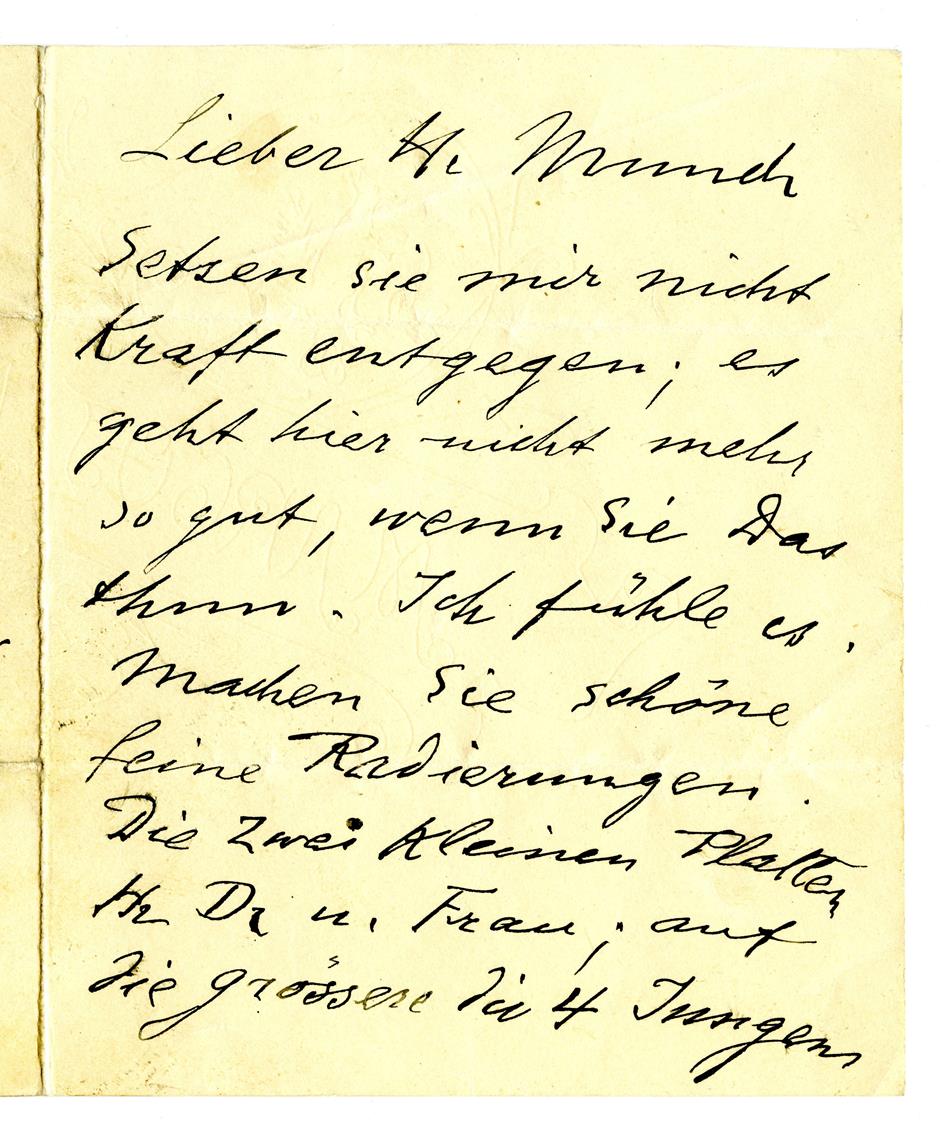 Lieber H. Munch
Setzen sie mir nicht
Kraft entgegen; es
geht hier nicht mehr
so gut, wenn Sie Das
thun. Ich fühle es.
Machen Sie schöne
feine Radierungen.
Die zwei kleinen Platten
Hr Dr u. Frau; auf
die grössere die 4 Jungen,